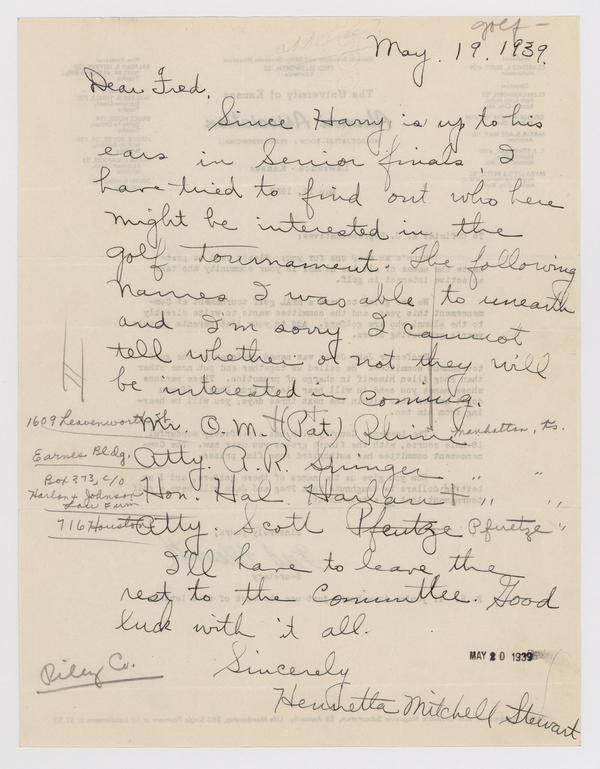 golf-
May. 19. 1939.
Dear Fred,
Since Harry is up to his
ears in Senior finals, I
have tried to find out who here
might be interested in the
golf tournament. The following
names I was able to unearth
and I'm sorry I cannot
tell whether or not they will
be interested in coming.
1609 Leavenworth St. Mr. O.M. (Pat) Manhattan, Ks.
Eames Bldg. Atty. A.R. Springer " "
Box 273, c/o
Harlan & Johnson Hon. Hal Harlan + " "
Law Firm
716 Houston Atty. Scott Pfuetze Pfuetze "
I'll have to leave the
rest to the Committee. Good
luck with it all.
MAY 20 1939
Sincerely
Riley Co.
Henrietta Mitchell Stewart